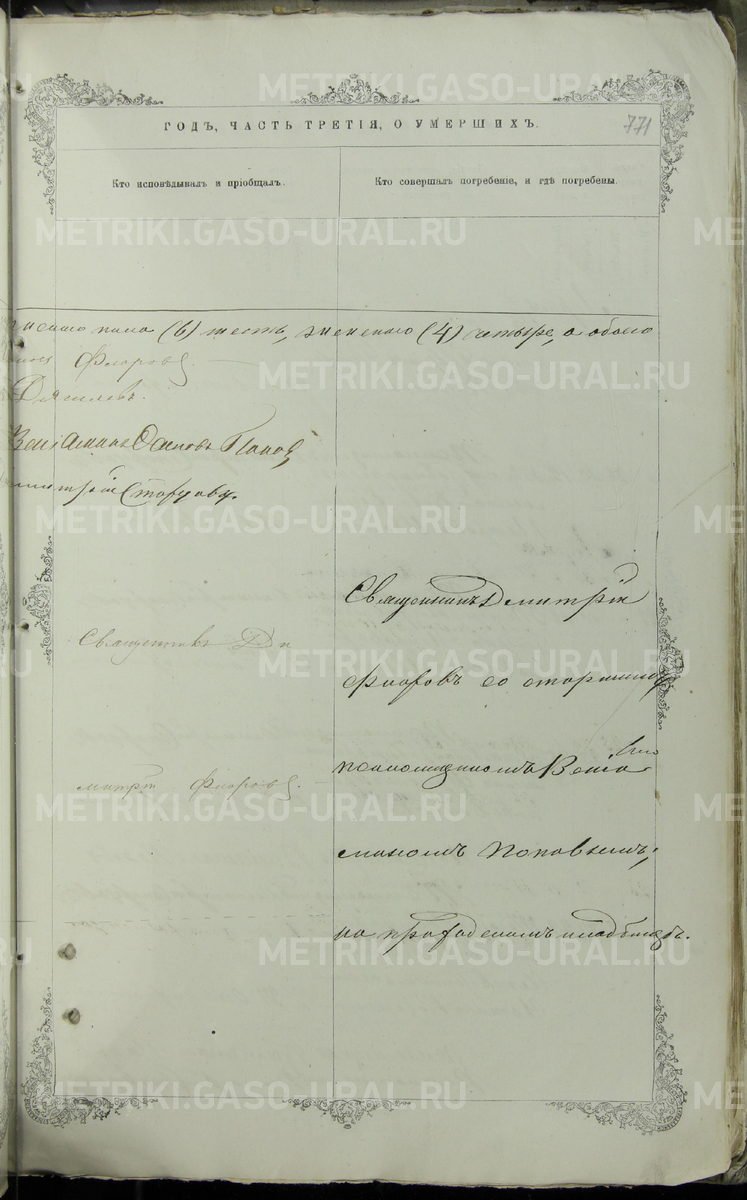 771
ГОДЪ, ЧАСТЬ ТРЕТІЯ, О УМЕРШИХЪ.
Кто исповѣдывалъ и пріобщалъ.
Кто совершалъ погребеніе, и гдѣ погребены.
пола (6) шесть, женскаго (4) четыре, а обоего
Флоровъ.
Веніаминъ Попов,
Священникъ Ди
митрій Флоровъ.
Священникъ Димитрій
Флоровъ со старшимъ
псаломщикомъ Веніа
миномъ Поповымъ,
на приходскомъ кладбищѣ.
METRIKI.GASO-URAL.RU